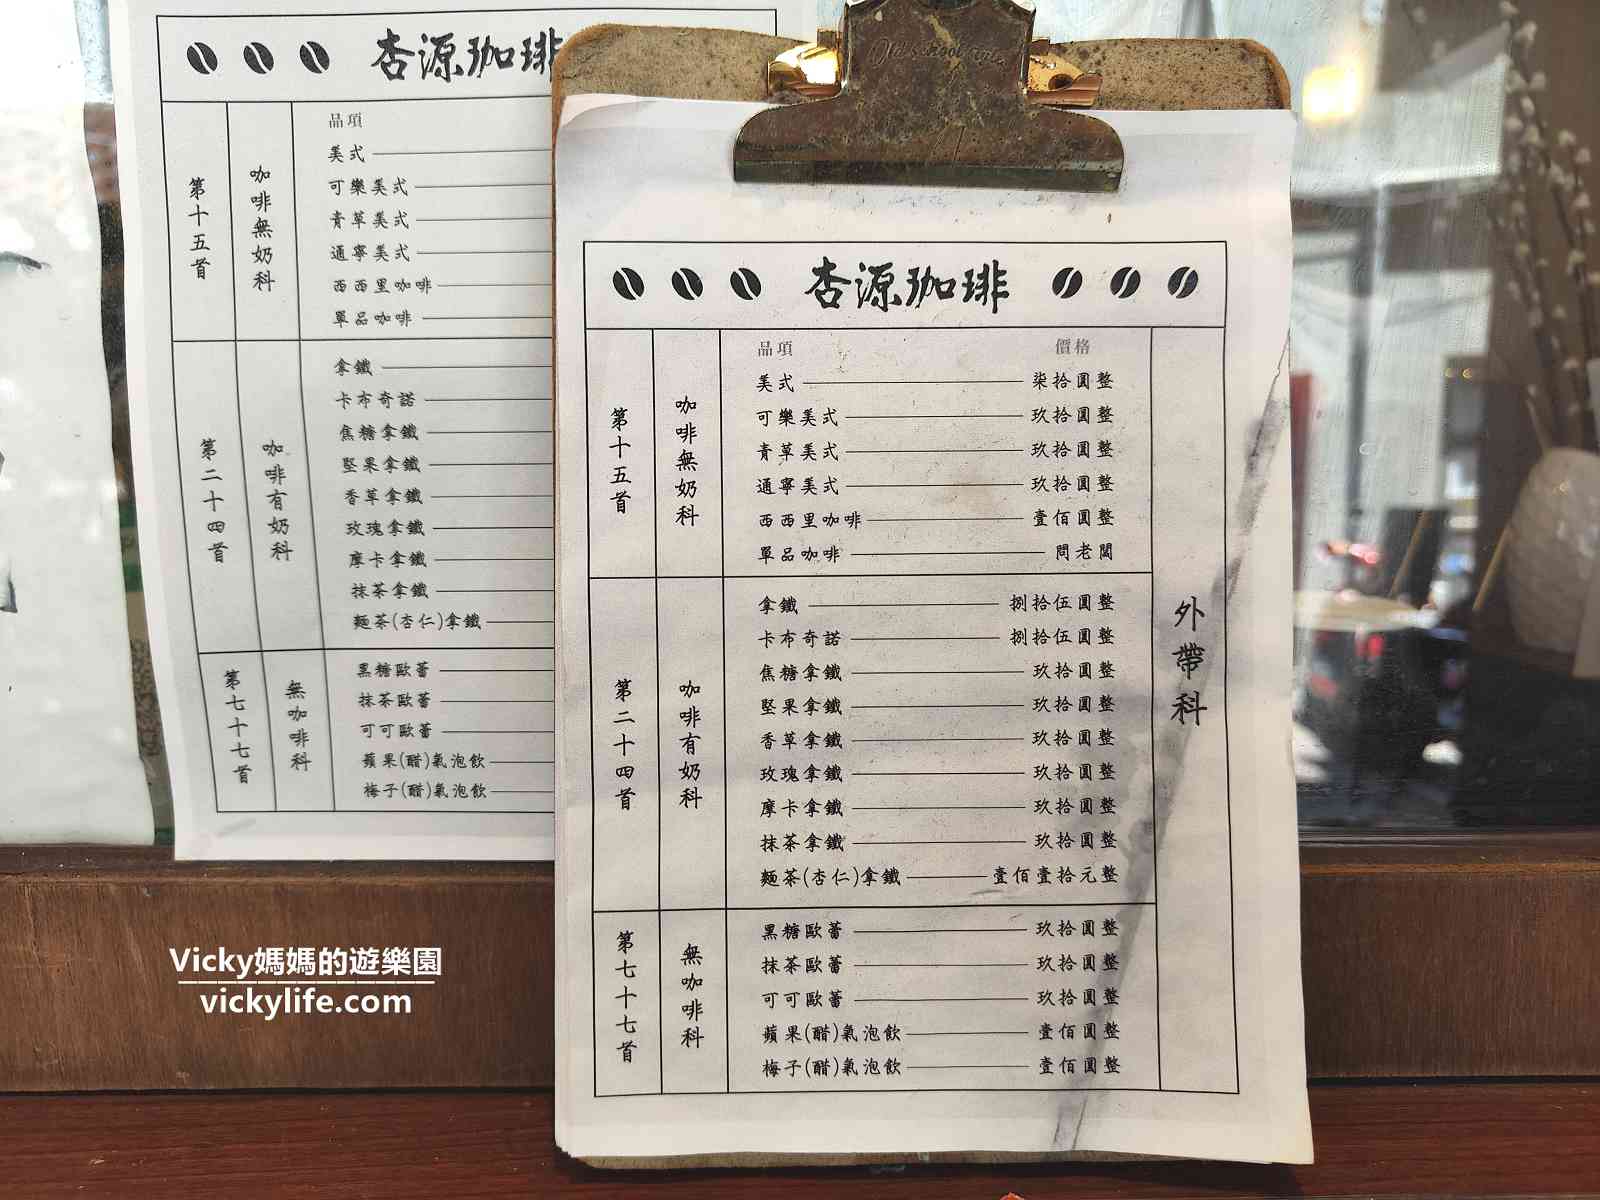 杏源珈琲
第十五首
咖啡無奶科
品項
美式
可樂美式
青草美式
通寧美式
西西里咖啡
單品咖啡
第二十四首
咖啡有奶科
拿鐵
卡布奇諾
焦糖拿鐵
堅果拿鐵
香草拿鐵
玫瑰拿鐵
摩卡拿鐵
抹茶拿鐵
麵茶(杏仁)拿鐵
第七十七首
無咖啡科
黑糖歐蕾
抹茶歐蕾
可可歐蕾
蘋果(醋)氣泡飲
梅子(醋)氣泡飲
Old school
杏源珈琲
第十五首
咖啡無奶科
品項 價格
美式 柒拾圓整
可樂美式 玖拾圓整
青草美式 玖拾圓整
通寧美式 玖拾圓整
西西里咖啡 壹佰圓整
單品咖啡 問老闆
第二十四首
咖啡有奶科
拿鐵 捌拾伍圓整
卡布奇諾 捌拾伍圓整
焦糖拿鐵 玖拾圓整
堅果拿鐵 玖拾圓整
香草拿鐵 玖拾圓整
玫瑰拿鐵 玖拾圓整
摩卡拿鐵 玖拾圓整
抹茶拿鐵 玖拾圓整
麵茶(杏仁)拿鐵 壹佰壹拾元整
第七十七首
無咖啡科
黑糖歐蕾 玖拾圓整
抹茶歐蕾 玖拾圓整
可可歐蕾 玖拾圓整
蘋果(醋)氣泡飲 壹佰圓整
梅子(醋)氣泡飲 壹佰圓整
外帶科
Vicky媽媽的遊樂園
vickylife.com